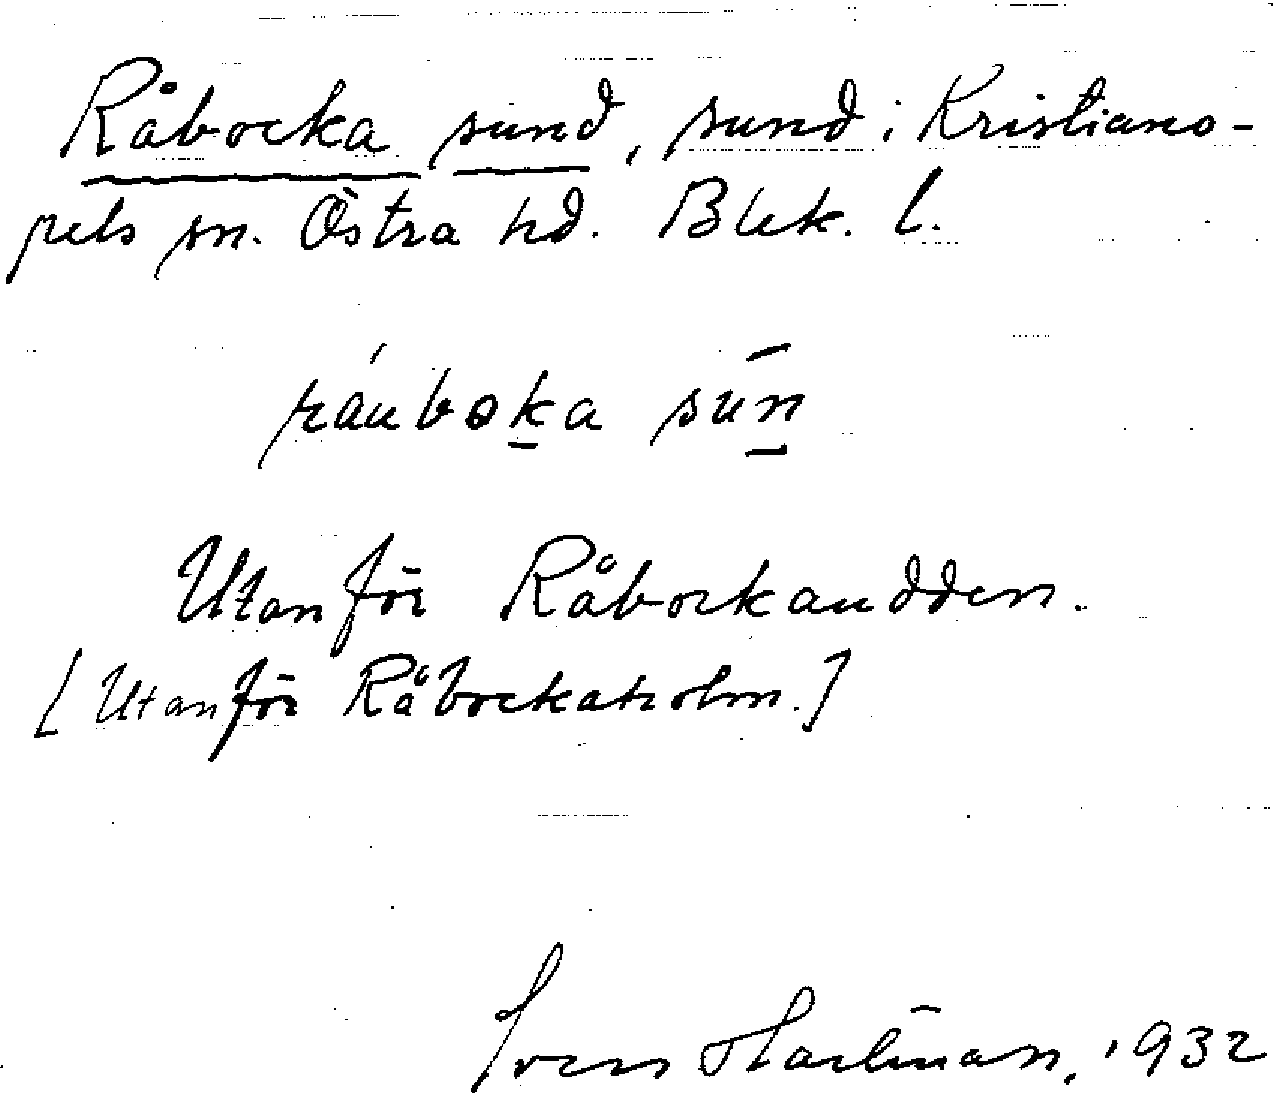 Råbocka sund, sund i Kristiano-
pels sn. Östra hd. Blek. l.
ráuboka sūn
Utanför Råbockaudden.
[Utanför Råbockaholm.]
Sven Hartman, 1932